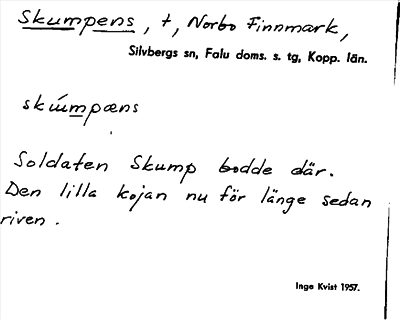 Skumpens, t, Norbo Finnmark,
Silvbergs sn, Falu doms. s. tg, Kopp. län.
skúmpæns
Soldaten Skump bodde där.
Den lilla kojan nu för länge sedan
riven.
Inge Kvist 1957.